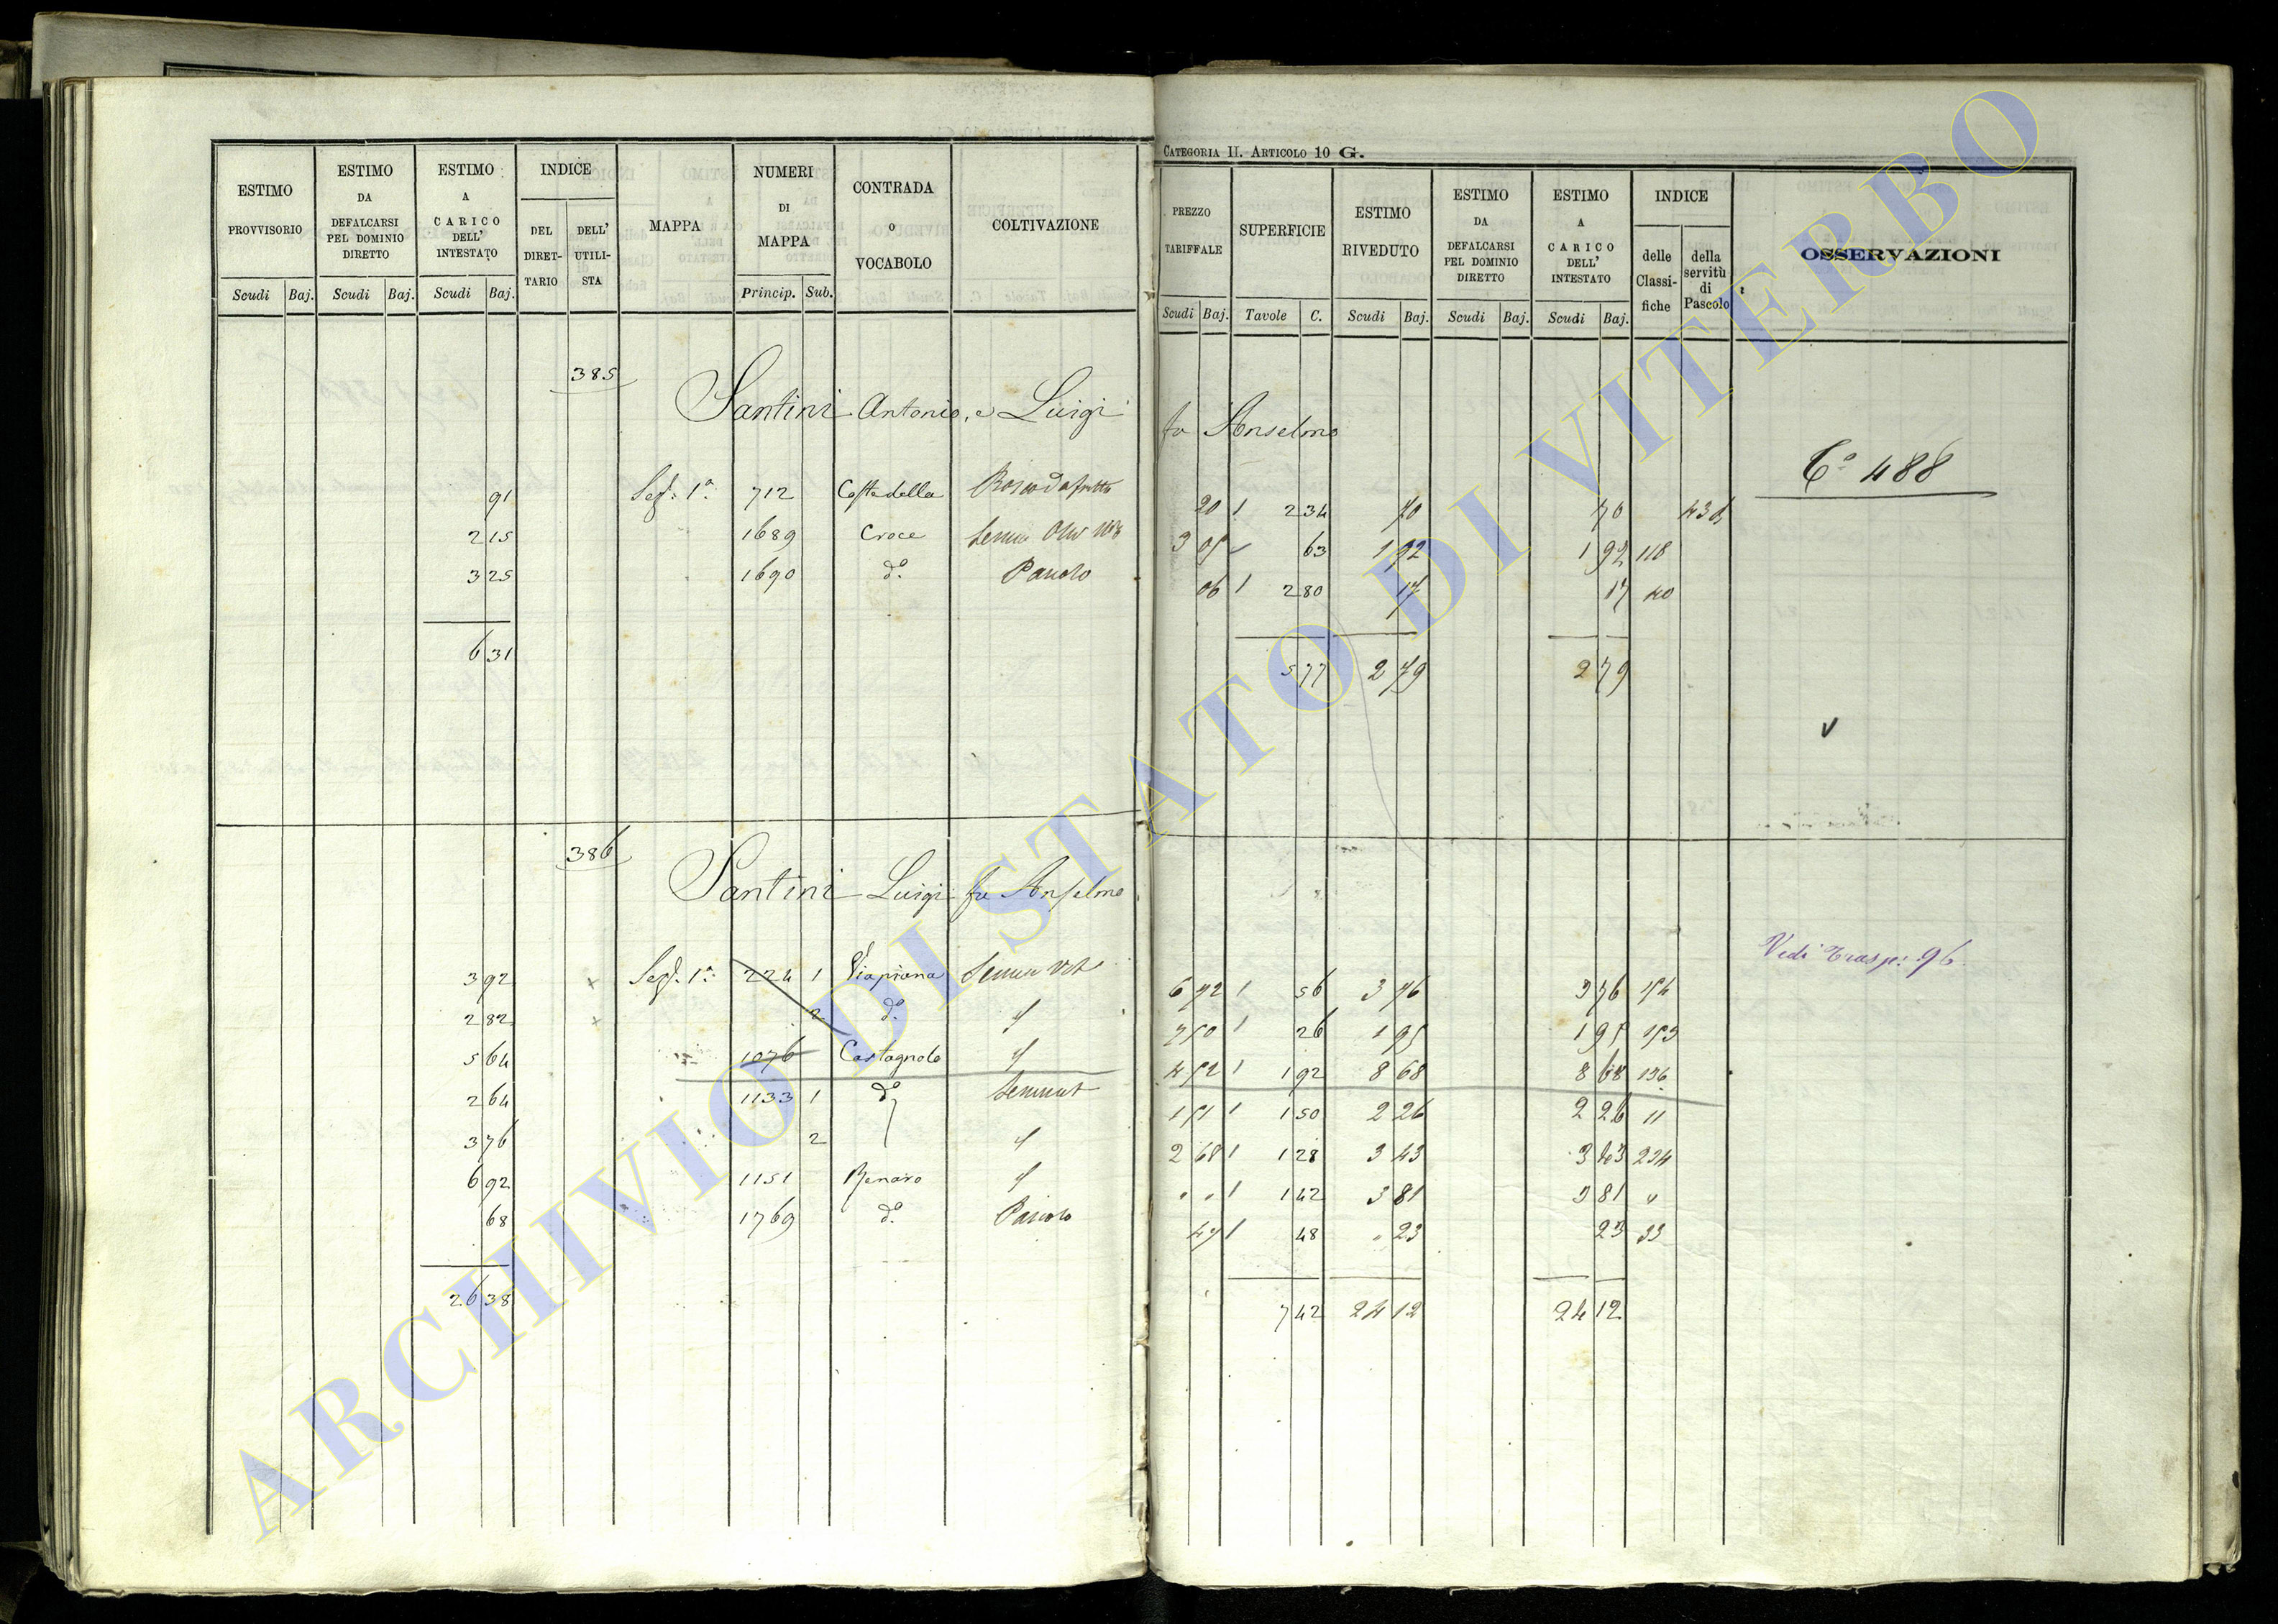 CATEGORIA II. ARTICOLO 10 G.
ESTIMO PROVVISORIO
Scudi Baj.
ESTIMO DA DEFALCARSI PEL DOMINIO DIRETTO
Scudi Baj.
ESTIMO A CARICO DELL' INTESTATO
Scudi Baj.
INDICE
DEL DIRET-TARIO
DELL' UTILI-STA
MAPPA
NUMERI DI MAPPA
Princip. Sub.
CONTRADA o VOCABOLO
COLTIVAZIONE
PREZZO TARIFFALE
Scudi Baj.
SUPERFICIE
Tavole C.
ESTIMO RIVEDUTO
Scudi Baj.
ESTIMO DA DEFALCARSI PEL DOMINIO DIRETTO
Scudi Baj.
ESTIMO A CARICO DELL' INTESTATO
Scudi Baj.
INDICE
delle Classi-fiche
della servitù di Pascolo
OSSERVAZIONI
385
Santini Antonio, e Luigi fu Anselmo
Cº 488
91 Sez. 1ª 712 Costadella 20 1 2 34 70 70
2 15 1689 Croce 3 05 63 1 92 1 92 118
3 25 1690 dº Pascolo 06 1 2 80 17 17 40
6 31 5 77 2 79 2 79
386
Santini Luigi fu Anselmo
Vedi Trasp: 96
3 92 Sez. 1ª 224 1 Viapiana 6 72 1 56 3 76 3 76 154
2 82 2 dº 7 50 1 26 1 95 1 95 153
5 64 1076 Castagnolo 4 52 1 1 92 8 68 8 68 136
2 64 1133 1 dº Seminat 1 51 1 1 50 2 26 2 26 11
3 76 2 2 68 1 1 28 3 43 3 43 234
6 92 1151 Renaro 1 1 42 3 81 3 81
68 1769 dº Pascolo 47 1 48 23 23 33
26 38 7 42 24 12 24 12
ARCHIVIO DI STATO DI VITERBO